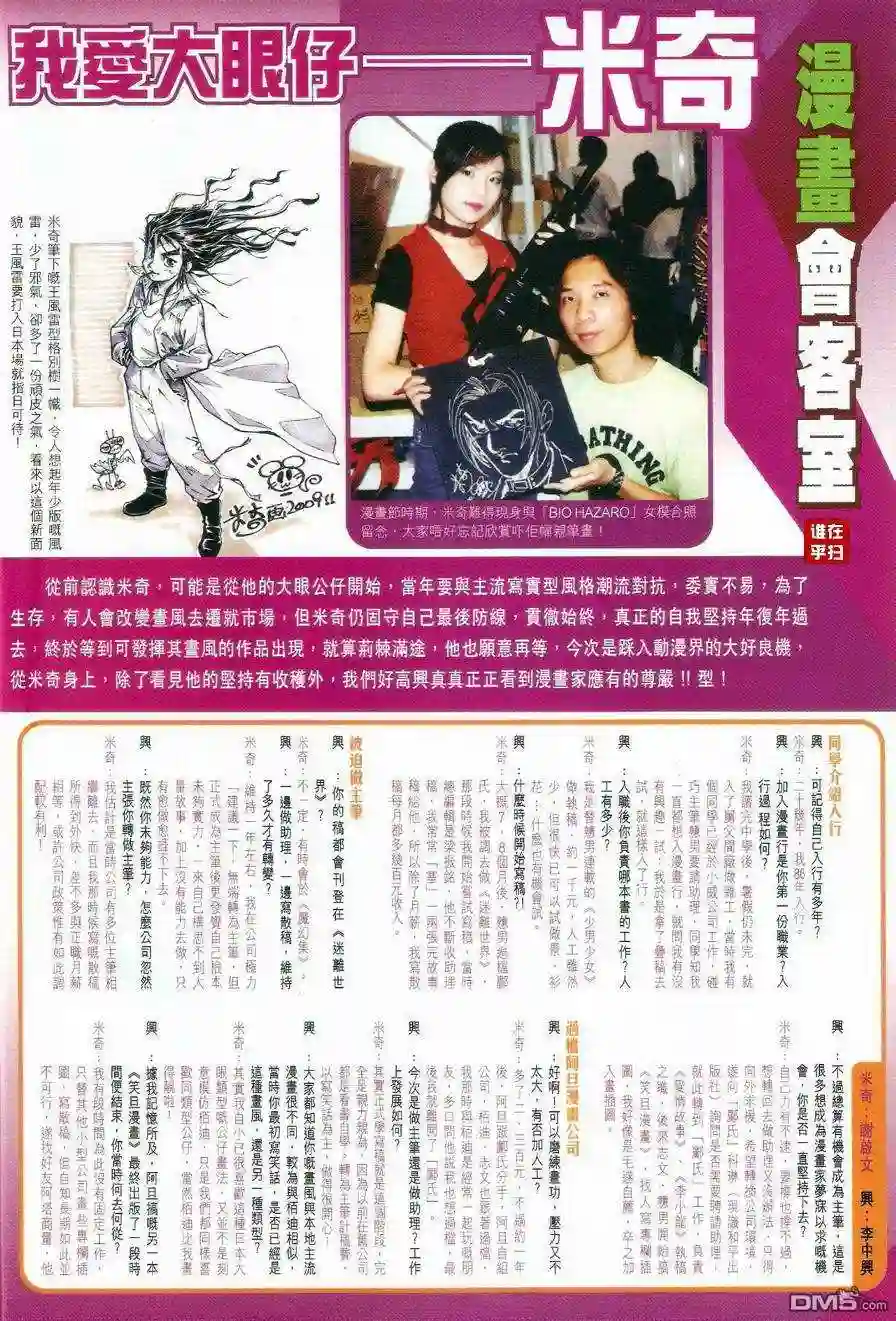 我愛大眼仔——米奇
漫畫會客室
誰在
乎扫
米奇筆下嘅王風雷型格別樹一幟，令人想起年少版嘅風
雷，少了邪氣，卻多了一份頑皮之氣，看來以這個新面
貌，王風雷要打入日本場就指日可待！
米奇画2009
BATHING
漫畫節時期，米奇難得現身與「BIO HAZARO」女模合照
留念，大家唔好忘記欣賞吓佢幅親筆畫！
從前認識米奇，可能是從他的大眼公仔開始，當年要與主流寫實型風格潮流對抗，委實不易，為了
生存，有人會改變畫風去遷就市場，但米奇仍固守自己最後防線，貫徹始終，真正的自我堅持年復年過
去，終於等到可發揮其畫風的作品出現，就算荊棘滿途，他也願意再等，今次是踩入動漫界的大好良機，
從米奇身上，除了看見他的堅持有收穫外，我們好高興真真正正看到漫畫家應有的尊嚴!!型！
同學介紹入行
興：可記得自己入行有多年？
米奇：二十幾年，我86年入行。
興：加入漫畫行是你第一份職業？入
行過程如何？
米奇：我讀完中學後，暑假仍未完，就
入了舅父間廠做雜工，當時我有
個同學已經於小威公司工作，碰
巧主筆戇男要請助理，同學知我
一直都想入漫畫行，就問我有沒
有興趣一試；我於是拿了疊稿去
試，就這樣入了行。
興：入職後你負責哪本書的工作？人
工有多少？
米奇：我是替戇男連載的《少男少女》
做執稿，約一千元，人工雖然
少，但很快已可以試做景，衫
花，什麼也有機會試。
興：什麼時候開始寫稿?!
米奇：大概7、8個月後，戇男過檔鄺
氏，我被調去做《迷離世界》，
那段時候我開始嘗試寫稿，當時
總編輯是梁振銘，他不斷收助理
稿，我常常「塞」一兩張元故事
稿給他，所以除了月薪，我寫散
稿每月都多幾百元收入。
被迫做主筆
興：你的稿都會刊登在《迷離世
界》？
米奇：不一定，有時會於《魔幻集》。
興：一邊做助理，一邊寫散稿，維持
了多久才有轉變？
米奇：維持一年左右，我在公司極力
「建議」下，無端轉為主筆，但
正式成為主筆後更發覺自己根本
未夠實力，一來自己構思不到大
量故事，加上沒有能力去做，只
有愈做愈捱不下去。
興：既然你未夠能力，怎麼公司忽然
主張你轉做主筆？
米奇：我估計是當時公司有多位主筆相
繼離去，而且我那時候寫嘅散稿
所得到外快，差不多與正職月薪
相等，或許公司政策惟有如此調
配較有利！
米奇：謝啟文 興：李中興
興：不過總算有機會成為主筆，這是
很多想成為漫畫家夢寐以求嘅機
會，你是否一直堅持下去？
米奇：自己力有不逮，要撐也撐不過，
想轉回去做助理又沒辦法，只得
向外求援，希望轉換公司環境，
遂向「鄺氏」科琳（現識和平出
版社）詢問是否需要聘請助理，
就此轉到「鄺氏」工作，負責
《愛情故事》《李小龍》執稿
之職，後來志文，戇男開始搞
《笑旦漫畫》，找人寫專欄插
圖，我好像是毛遂自薦，卒之加
入畫插圖。
過檔阿旦漫畫公司
興：好啊！可以磨練畫功，壓力又不
太大，有否加人工？
米奇：多了二、三百元，不過約一年
後，阿旦跟鄺氏分手，阿旦自組
公司，栢迪，志文也跟著過檔，
我那時與栢迪是經常一起玩嘅朋
友，多口問他說我也想過檔，最
後我就離開了「鄺氏」。
興：今次是做主筆還是做助理？工作
上發展如何？
米奇：其實正式學寫稿就是這個階段，完
全是親力親為，因為以前在舊公司
都是看書自學，轉為主筆計稿薪，
以寫笑話為主，做得很開心！
興：大家都知道你嘅畫風與本地主流
漫畫很不同，較為與栢迪相似，
當時你最初寫笑話，是否已經是
這種畫風，還是另一種類型？
米奇：其實我自小已很喜歡這種日本大
眼類型嘅公仔畫法，又並不是刻
意模仿栢迪，只是我們都同樣喜
歡同類型公仔，當然栢迪比我畫
得靚啦！
興：據我記憶所及，阿旦搞嘅另一本
《笑旦漫畫》最終出版了一段時
間便結束，你當時何去何從？
米奇：我有段時間為此沒有固定工作，
只替其他小型公司畫些專欄插
圖，寫散稿，但自知長期如此並
不可行，遂找好友阿塔商量，他
DM5.com